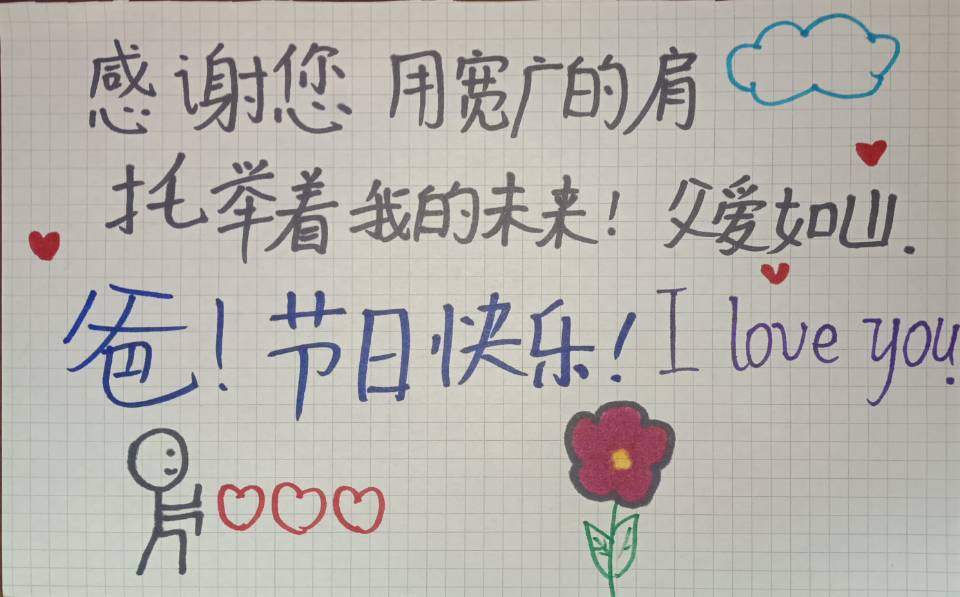 感谢您 用宽广的肩
托举着我的未来！父爱如山.
爸！节日快乐！I love you!